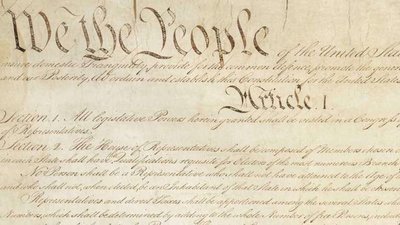 We the People of the United Sta
insure domestic Tranquility, provide for the common defence, promote the gene
and our Posterity, do ordain and establish this Constitution for the United States
Article I.
Section 1. All legislative Powers herein granted shall be vested in a Congress
of Representatives.
Section 2. The House of Representatives shall be composed of Members chosen
in each State shall have the Qualifications requisite for Electors of the most numerous Branch
No Person shall be a Representative who shall not have attained to the Age of
and who shall not, when elected, be an Inhabitant of that State in which he shall be chosen
Representatives and direct Taxes shall be apportioned among the several States
Numbers, which shall be determined by adding to the whole Number of free Persons, includ